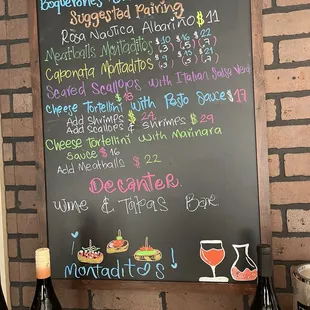 Boquerones
Suggested Pairing
Rosa Nautica Albariño $11
Meatballs Montaditos $10 $16 $22
(3) (5) (7)
Caponata Montaditos
(3) (5) (7)
Seared Scallops with Italian Salsa Verde
$18
Cheese Tortellini with Pesto Sauce $17
Add Shrimps $24
Add Scallops & Shrimps $29
Cheese Tortellini with Marinara
Sauce $16
Add Meatballs $22
Decanter
Wine & Tapas Bar
¡Montaditos!